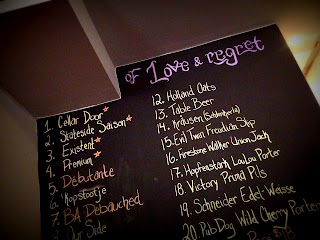 Of Love & regret
1. Cellar Door*
2. Stateside Saison*
3. Existent*
4. Premium*
5. Débutante
6. Kopstootje
7. BA Debauched
Our Side
12. Holland Oats
13. Table Beer
14. Kräusen (Schlenkerla)
15. Evil Twin Freudian Slip
16. Firestone Walker Union Jack
17. Hopfenstark LouLou Porter
18. Victory Prima Pils
19. Schneider Edel-Weisse
20. PubDog Wild Cherry Porter